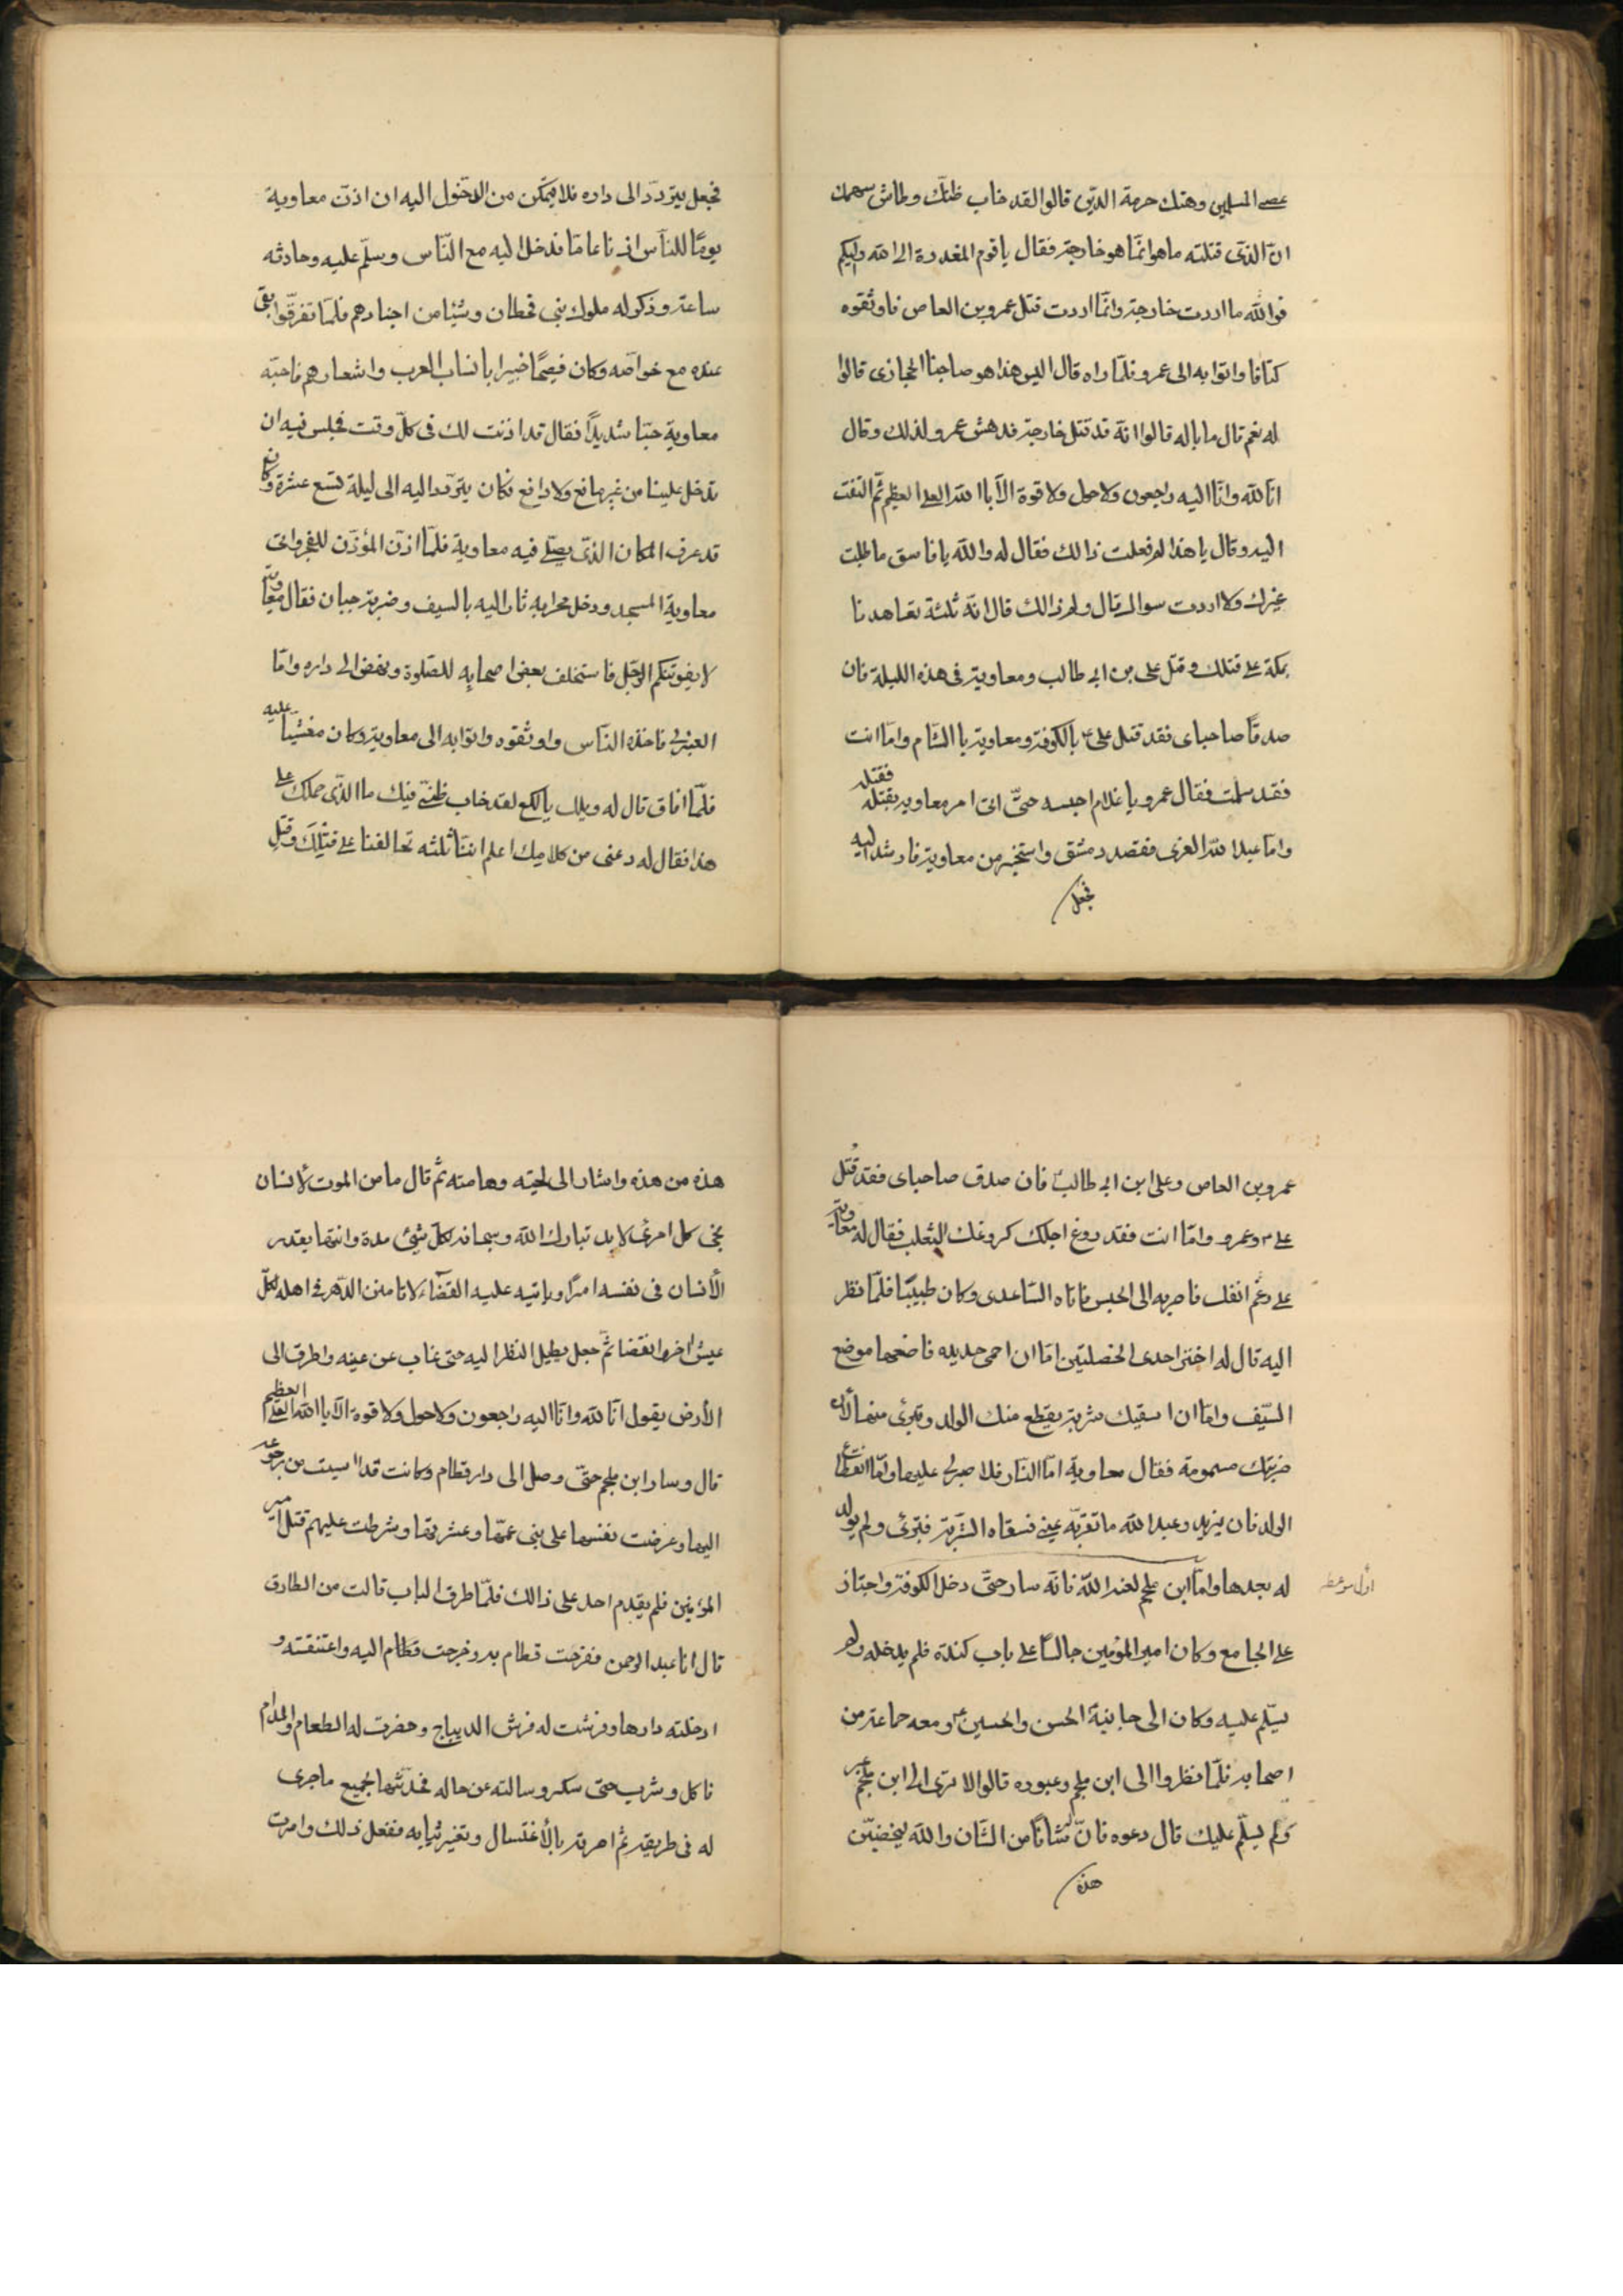 عصى المسلمين وهتك حرمة الدّين قالوا لقد خاب ظنّك وطاش سهمك
انّ الّذى قتلته ما هو انّما هو خارجة فقال يا قوم المغدرة الى الله واليكم
فو الله ما اردت خارجة وانّما اردت قتل عمرو بن العاص فاوثقوه
كتافا واتوا به الى عمرو فلمّا راه قال اليس هذا هو صاحبنا الحجازى قالوا
له نعم قال ما باله قالوا انّه قد قتل خارجة فدهش عمرو لذلك وقال
انّا لله وانّا اليه راجعون ولا حول ولا قوة الّا باالله العلى العظيم ثمّ التفت
اليه وقال يا هذا لم فعلت ذالك فقال له والله يا فاسق ما طلبت
غيرك ولا اردت سواك قال ولم ذالك قال انّه ثلثة تعاهدنا
بمكة على قتلك وقتل على بن ابى طالب ومعاوية فى هذه الليلة فان
صدقا صاحباى فقد قتل على ع بالكوفة ومعاوية باالشّام وامّا انت
فقد سلمت فقال عمرو يا غلام احبسه حتّى اتى امر معاويه بقتله فقتله
وامّا عبد الله العنزى فقصد دمشق واستخبر من معاوية فارشد اليه
فجعل
فجعل يتردّد الى داره فلا يتمكّن من الدّخول اليه ان اذن معاوية
يومًا للنّاس اذنا عامّا فدخل اليه مع النّاس وسلّم عليه وحادثه
ساعة وذكر له ملوك بنى قحطان وشيئا من اخبارهم فلمّا تفرّقوا بقى
عنده مع خواصّه وكان فصيحًا خبيرا بأنساب العرب واشعارهم فاحبّه
معاوية حبّا شديدًا فقال قد اذنت لك فى كلّ وقت نجلس فيه ان
تدخل علينا من غير مانع ولا دافع فكان يتردّد اليه الى ليلة تسع عشرة وكان
قد عرف المكان الذى يصلّى فيه معاوية فلمّا اذّن المؤذّن للفجر واتى
معاوية المسجد ودخل محرابه ثار اليه بالسيف وضربة جبان فقال معاوية
لا يفوتنكم الرّجل فاستخلف بعض اصحابه للصّلوة ونهض الى داره وامّا
العنزى فاخذه النّاس واوثقوه واتوا به الى معاوية وكان مغشيًّا عليه
فلمّا افاق قال له ويلك يا لكع لقد خاب ظنّى فيك ما الّذى حملك على
هذا فقال له دعنى من كلامك اعلم انّنا ثلثه تحالفنا على قتلك وقتل
عمرو بن العاص وعلى ابن ابى طالب فان صدق صاحباى فقد قتل
على ع وعمرو وامّا انت فقد روغ اجلك كروغك الثعلب فقال له معاوية
على رغم انفك فامر به الى الحبس فاتاه السّاعدى وكان طبيبًا فلمّا نظر
اليه قال له اختر احدى الخصلتين امّا ان احمى حديده فاضعها موضع
السّيف وامّا ان اسقيك شربة يقطع منك الولد وتبرئ منها لأنّ
ضربتك مسمومة فقال معاوية امّا النّار فلا صبر لى عليها وامّا انقطاع
الولد فان يزيد وعبد الله ما تقرّبه عينى فسقاه الشّربة فبرئ ولم يولد
له بعدها وامّا ابن ملجم لعنه الله فانّه سار حتّى دخل الكوفة واجتاز
اوّل موعظه
على الجامع وكان امير المؤمنين جالسًا على باب كندة فلم يدخله ولم
يسلّم عليه وكان الى جانبية الحسن والحسين ع ومعه جماعة من
اصحابه فلمّا نظروا الى ابن ملجم وعبوره قالوا الا ترى الى ابن ملجم عبر
ولم يسلّم عليك قال دعوه فانّ له شانًا من الشّان والله ليخضبّن
هذه
هذه من هذه واشار الى لحيته وهامته ثمّ قال ما من الموت لأنسان
نجى كل امرئ لابد تبارك الله وسبحانه لكلّ شئ مدة وانتها يقدر
الأنسان فى نفسه امرًا وياتيه عليه القضاء لا تامنن الدّهر فى اهله لكلّ
عيش اخر وانقضا ثمّ جعل يطيل النظر اليه حتى غاب عن عينه واطرق الى
الأرض يقول انّا لله وانّا اليه راجعون ولا حول ولا قوة الّا باالله العلى العظيم
قال وسار ابن ملجم حتّى وصل الى دار قطام وكانت قد ايست من رجوعه
اليها وعرضت نفسها على بنى عمّها وعشيرتها وشرطت عليهم قتل امير
المؤمنين فلم يقدم احد على ذالك فلمّا طرق الباب قالت من الطارق
قال انا عبد الرحمن ففرحت قطام به وخرجت قطام اليه واعتنقته و
ادخلته دارها وفرشت له فرش الديباج وحضرت له الطعام والمدام
فاكل وشرب حتى سكر وسالته عن حاله فحدّثها بجميع ماجرى
له فى طريقه ثمّ امرته بالأغتسال وتغير ثيابه ففعل ذلك وامرت